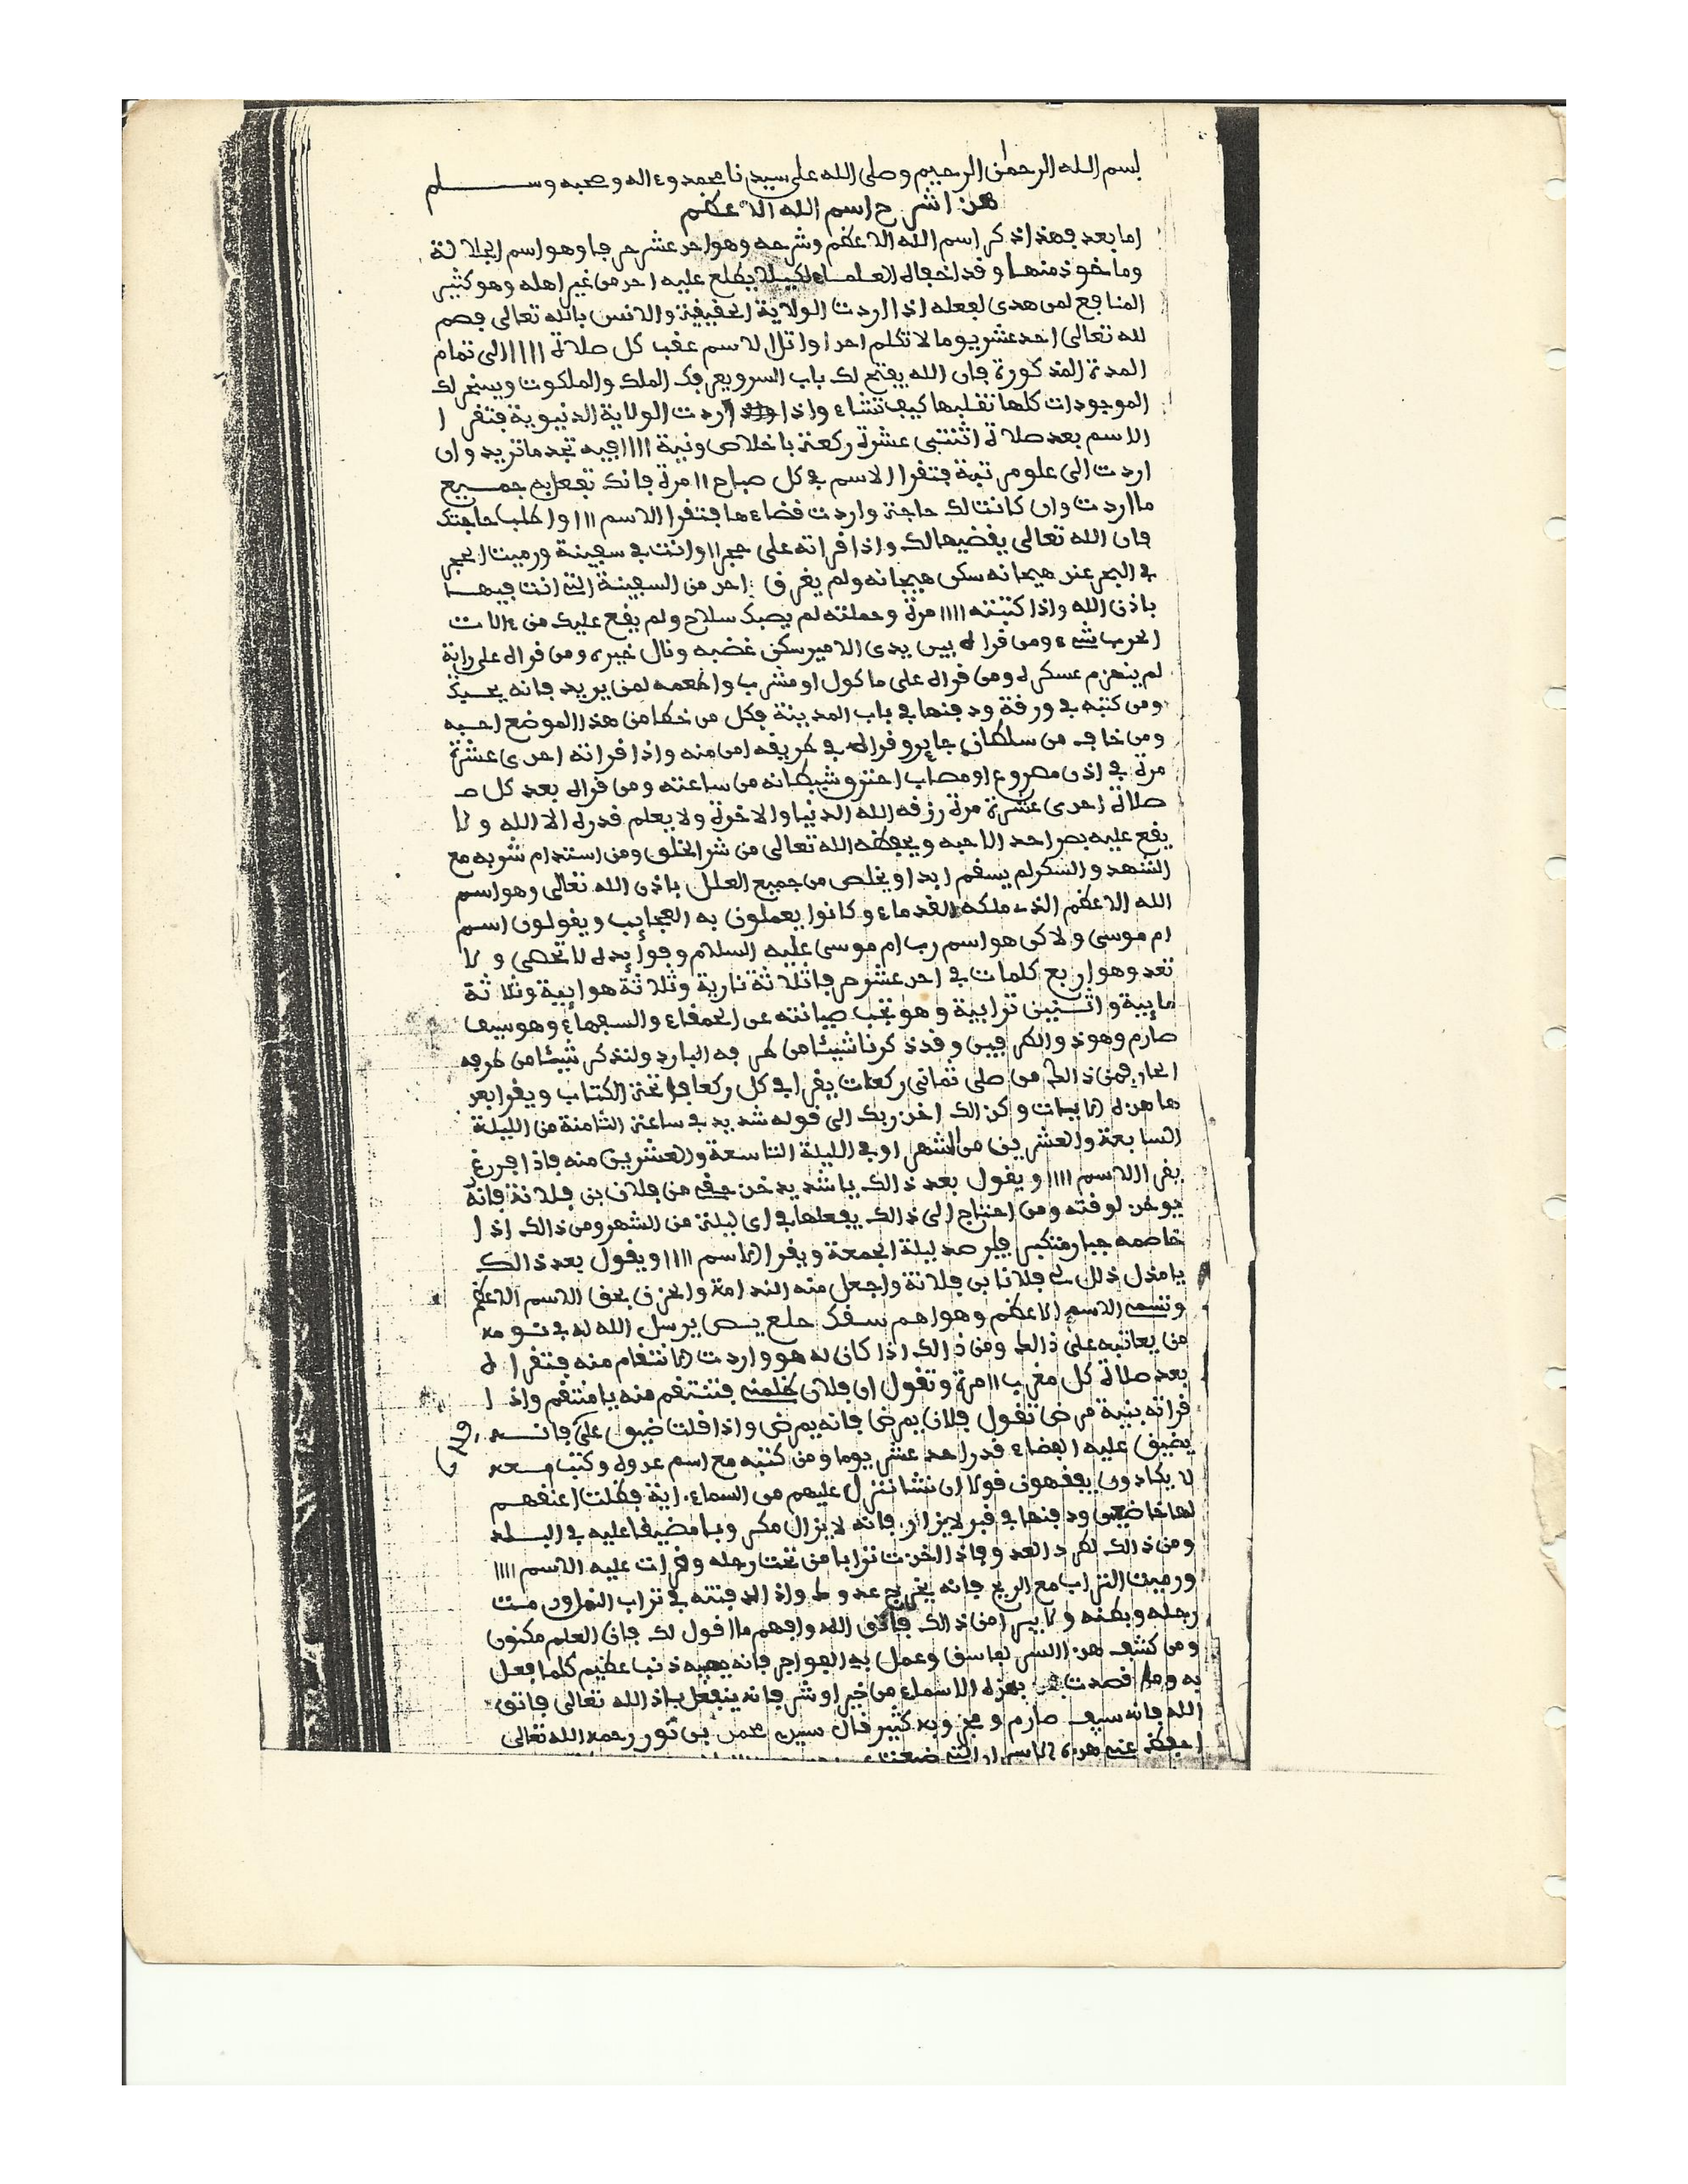 بسم الله الرحمن الرحيم وصلى الله على سيدنا محمد وءاله وصحبه وسلم
هذا شرح اسم الله الاعظم
اما بعد فهذا ذكر اسم الله الاعظم وشرحه وهو احد عشر حرفا وهو اسم الجلالة
وماخوذ منها وقد اخفاه العلماء لكيلا يطلع عليه احد من غير اهله وهو كثير
المنافع لمن هدى لفعله اذا اردت الولاية الحقيقية والانس بالله تعالى فصم
لله تعالى احد عشر يوما لا تكلم احدا واتل الاسم عقب كل صلاة ١١١١ الى تمام
المدة المذكورة فان الله يفتح لك باب السر ويعرفك الملك والملكوت ويسخر لك
الموجودات كلها تقلبها كيف تشاء واذا اردت الولاية الدنيوية فتقرا
الاسم بعد صلاة اثنتي عشرة ركعة باخلاص ونية ١١١١ فيه تجد ما تريد وان
اردت الى علو مرتبة فتقرا الاسم في كل صباح ١١ مرة فانك تفعل به جميع
ما اردت وان كانت لك حاجة واردت قضاءها فتقرا الاسم ١١١ واطلب حاجتك
فان الله تعالى يقضيها لك واذا قراته على حجر ١١ وانت في سفينة ورميت الحجر
في البحر عند هيجانه سكن هيجانه ولم يغرق احد من السفينة التي انت فيها
باذن الله واذا كتبته ١١١١ مرة وحملته لم يصبك سلاح ولم يقع عليك من ءالات
الحرب شيء ومن قراه بين يدى الامير سكن غضبه ونال خيره ومن قراه على راية
لم ينهزم عسكره ومن قراه على ماكول او مشرب واطعمه لمن يريد فانه يحبك
ومن كتبه في ورقة ودفنها في باب المدينة فكل من خطا من هذا الموضع احبه
ومن خاف من سلطان جاير وقراه في طريقه امن منه واذا قراته احدى عشرة
مرة في اذن مصروع او مصاب احترق شيطانه من ساعته ومن قراه بعد كل ص
صلاة احدى عشرة مرة رزقه الله الدنيا والاخرة ولا يعلم قدره الا الله ولا
يقع عليه بصر احد الا احبه ويحفظه الله تعالى من شر الخلق ومن استدام شربه مع
الشهد والسكر لم يسقم ابدا ويخلص من جميع العلل باذن الله تعالى وهو اسم
الله الاعظم الذي ملكه القدماء وكانوا يعملون به العجايب ويقولون اسم
ام موسى ولاكن هو اسم رب ام موسى عليه السلام وفوايده لا تحصى ولا
تعد وهو اربع كلمات في احد عشر حرفا ثلاثة نارية وثلاثة هوايية وثلاثة
مايية واثنين ترابية وهو تجب صيانته عن الحمقاء والسفهاء وهو سيف
صارم وهو ذو الطرفين وقد ذكرنا شيئا من طرفه البارد ولنذكر شيئا من طرفه
الحار فمن ذالك من صلى ثماني ركعات يقرا في كل ركعة فاتحة الكتاب ويقرا بعد
ها هذه الايات وكذالك اخذ ربك الى قوله شديد في ساعة الثامنة من الليلة
السابعة والعشرين من الشهر او في الليلة التاسعة والعشرين منه فاذا فرغ
يقرا الاسم ١١١١ ويقول بعد ذالك يا شديد خذ حقي من فلان بن فلانة فانه
يوخذ لوقته ومن احتاج الى ذالك يفعلها في اى ليلة من الشهر ومن ذالك اذا
خاصمه جبار متكبر فليرصد ليلة الجمعة ويقرا الاسم ١١١١ ويقول بعد ذالك
يا مذل ذلل لي فلانا بن فلانة واجعل منه الندامة والحزن بحق الاسم الاعظم
وتسمى الاسم الاعظم وهو اهم سقك حلع يص يرسل الله له في نومه
من يعاتبه على ذالك ومن ذالك اذا كان له هو واردت الانتقام منه فتقراه
بعد صلاة كل مغرب ١١ مرة وتقول ان فلان ظلمني فتنتقم منه يا منتقم واذا
قراته بنية مرض تقول فلان يمرض فانه يمرض واذا قلت ضيق على فانه
يضيق عليه الفضاء قدر احد عشر يوما ومن كتبه مع اسم عدوه وكتب معه
لا يكادون يفقهون قولا ان نشا ننزل عليهم من السماء اية فظلت اعنقهم
لها خاضعين ودفنها في قبر لا يزار فانه لا يزال مكروبا مضيقا عليه في البلد
ومن ذالك لطرد العدو فاذا اخذت ترابا من تحت رجله وقرات عليه الاسم ١١١١
ورميت التراب مع الريح فانه يخرج عدوك واذا دفنته في تراب النمل ورمت
رجله وبطنه ولا يبرا من ذالك فاتق الله وافهم ما اقول لك فان العلم مكنون
ومن كشف هذا السر لفاسق وعمل به الفواجر فانه يصيبه ذنب عظيم كلما فعل
به وما قصدت بهذه الاسماء من خير او شر فانه ينفعل باذن الله تعالى فاتق
الله فانه سيف صارم ومجربه كثير قال سيدي محمد بن تور رحمه الله تعالى
احفظ عني هذه الاسرار التي